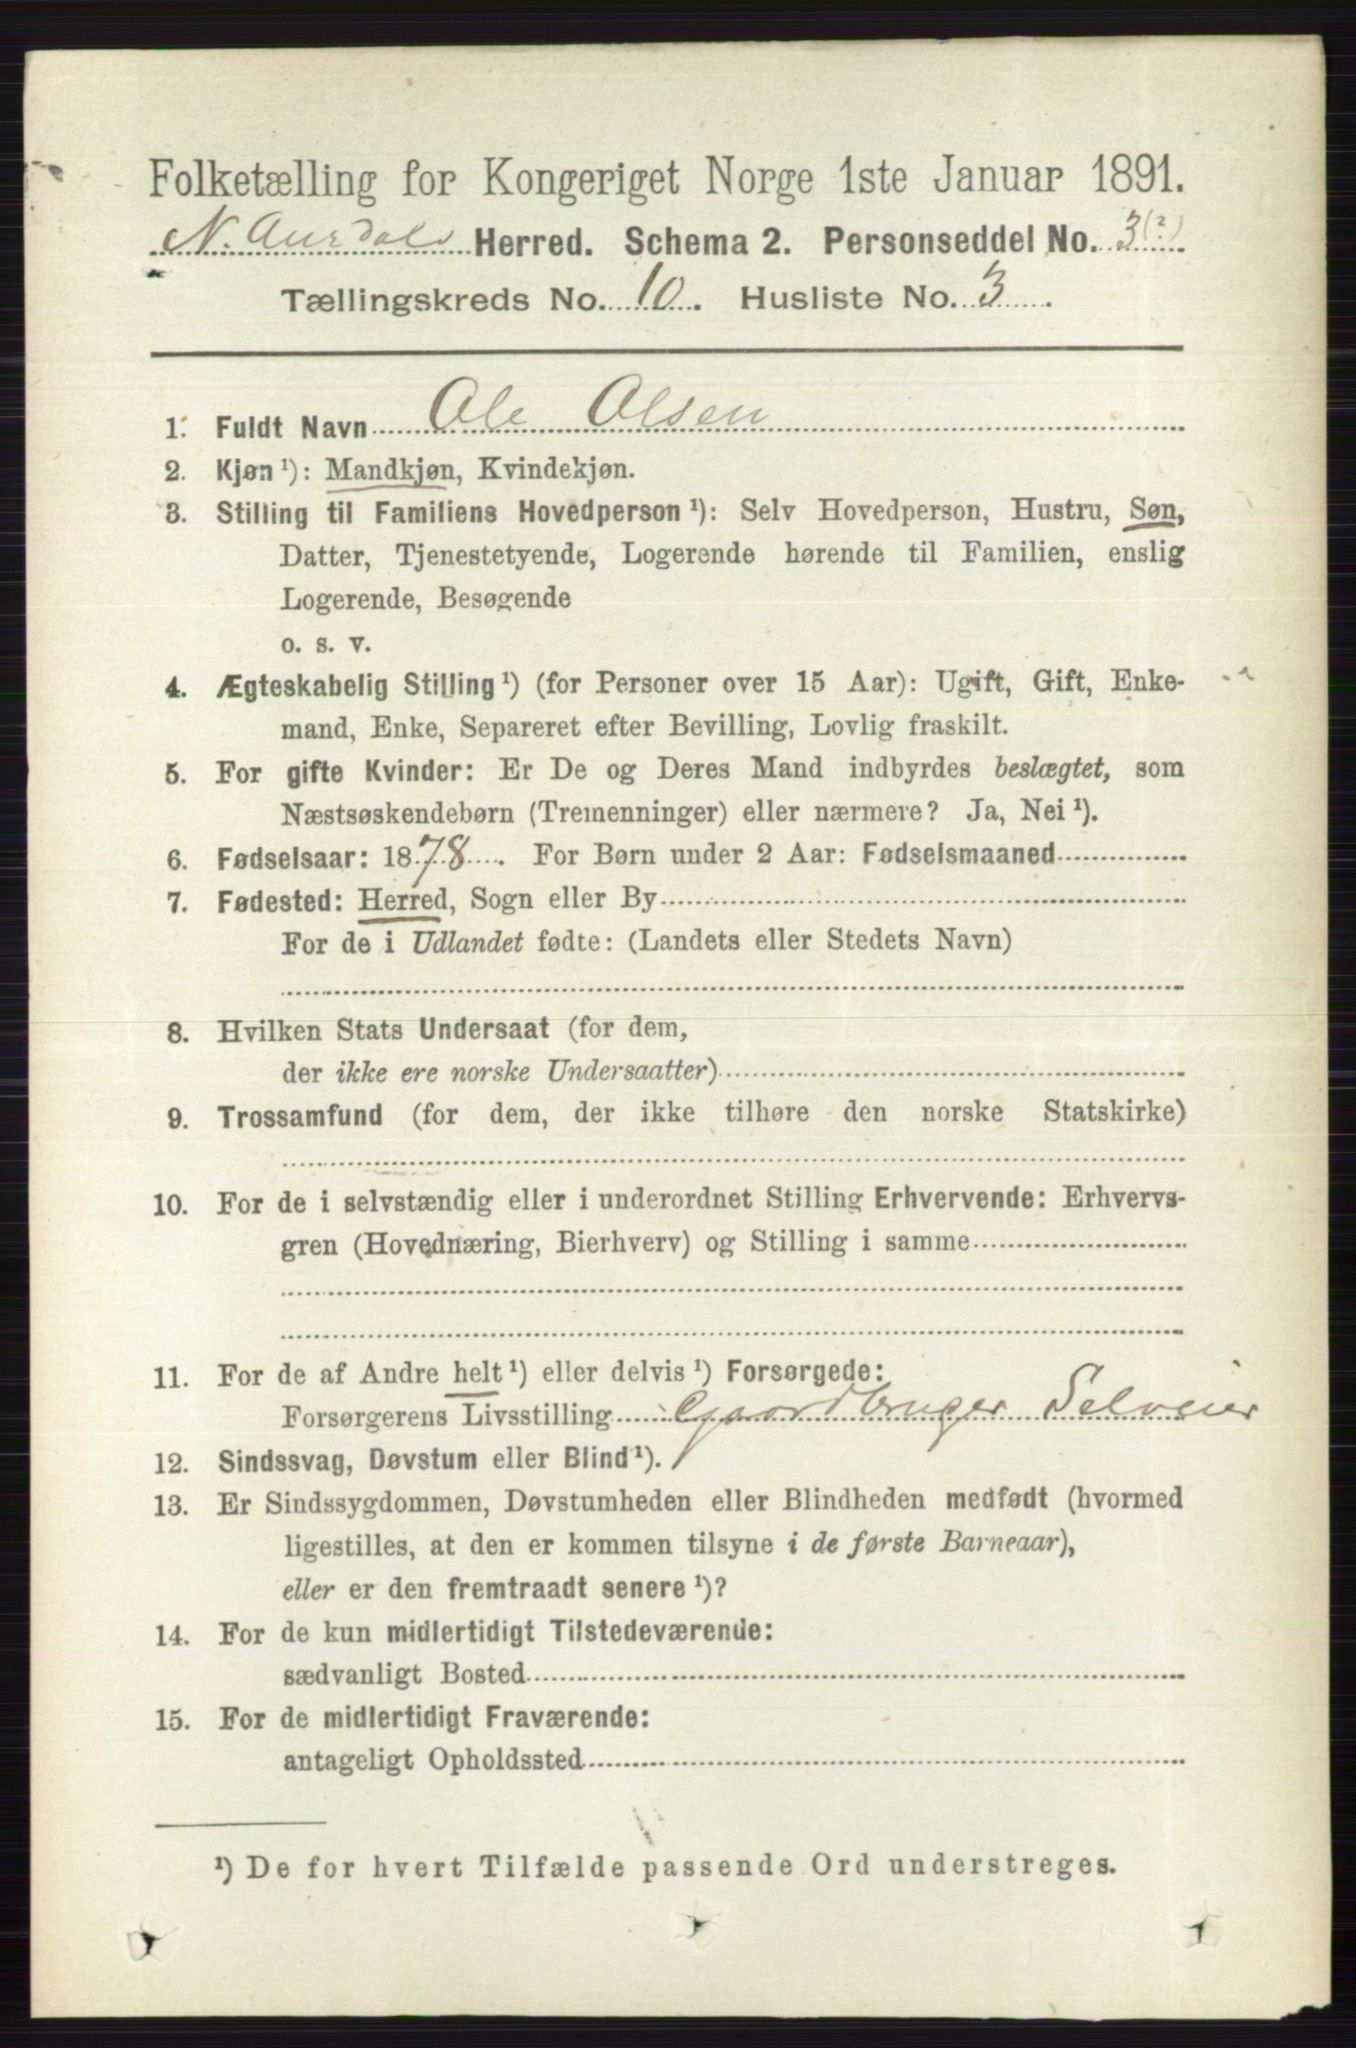 Folketælling for Kongeriget Norge 1ste Januar 1891.
N. Aurdals Herred. Schema 2. Personseddel No. 3(2)
Tællingskreds No. 10. Husliste No. 3.
1. Fuldt Navn Ole Olsen
2. Kjøn ¹): Mandkjøn, Kvindekjøn.
3. Stilling til Familiens Hovedperson ¹): Selv Hovedperson, Hustru, Søn,
Datter, Tjenestetyende, Logerende hørende til Familien, enslig
Logerende, Besøgende
o. s. v.
4. Ægteskabelig Stilling ¹) (for Personer over 15 Aar): Ugift, Gift, Enke-
mand, Enke, Separeret efter Bevilling, Lovlig fraskilt.
5. For gifte Kvinder: Er De og Deres Mand indbyrdes beslægtet, som
Næstsøskendebørn (Tremenninger) eller nærmere? Ja, Nei ¹).
6. Fødselsaar: 1878. For Børn under 2 Aar: Fødselsmaaned
7. Fødested: Herred, Sogn eller By
For de i Udlandet fødte: (Landets eller Stedets Navn)
8. Hvilken Stats Undersaat (for dem,
der ikke ere norske Undersaatter)
9. Trossamfund (for dem, der ikke tilhøre den norske Statskirke)
10. For de i selvstændig eller i underordnet Stilling Erhvervende: Erhvervs-
gren (Hovednæring, Bierhverv) og Stilling i samme
11. For de af Andre helt ¹) eller delvis ¹) Forsørgede:
Forsørgerens Livsstilling Gaardbruger Selveier
12. Sindssvag, Døvstum eller Blind ¹).
13. Er Sindssygdommen, Døvstumheden eller Blindheden medfødt (hvormed
ligestilles, at den er kommen tilsyne i de første Barneaar),
eller er den fremtraadt senere ¹)?
14. For de kun midlertidigt Tilstedeværende:
sædvanligt Bosted
15. For de midlertidigt Fraværende:
antageligt Opholdssted
¹) De for hvert Tilfælde passende Ord understreges.